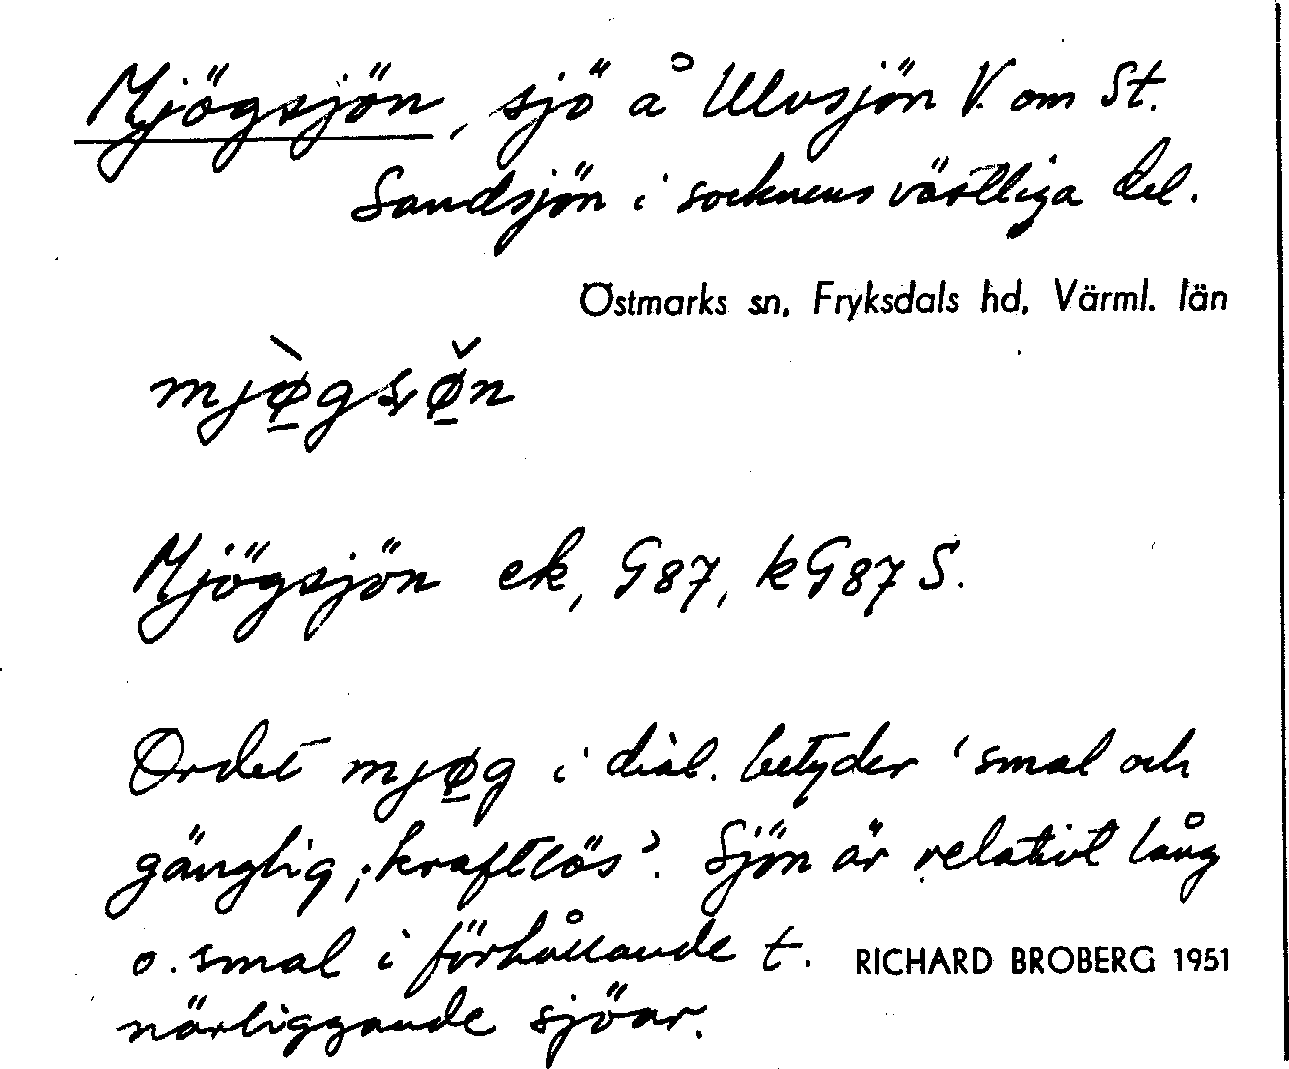 Mjögsjön, sjö å Ulvsjön V. om St.
Sandsjön i socknens västliga del.
Östmarks sn, Fryksdals hd, Värml. län
mjø̲̀gsø̲̌n
Mjögsjön ek, G87, kG87 S.
Ordet mjø̲g i dial. betyder 'smal och
gänglig; kraftlös'. Sjön är relativt lång
o. smal i förhållande t.
RICHARD BROBERG 1951
närliggande sjöar.